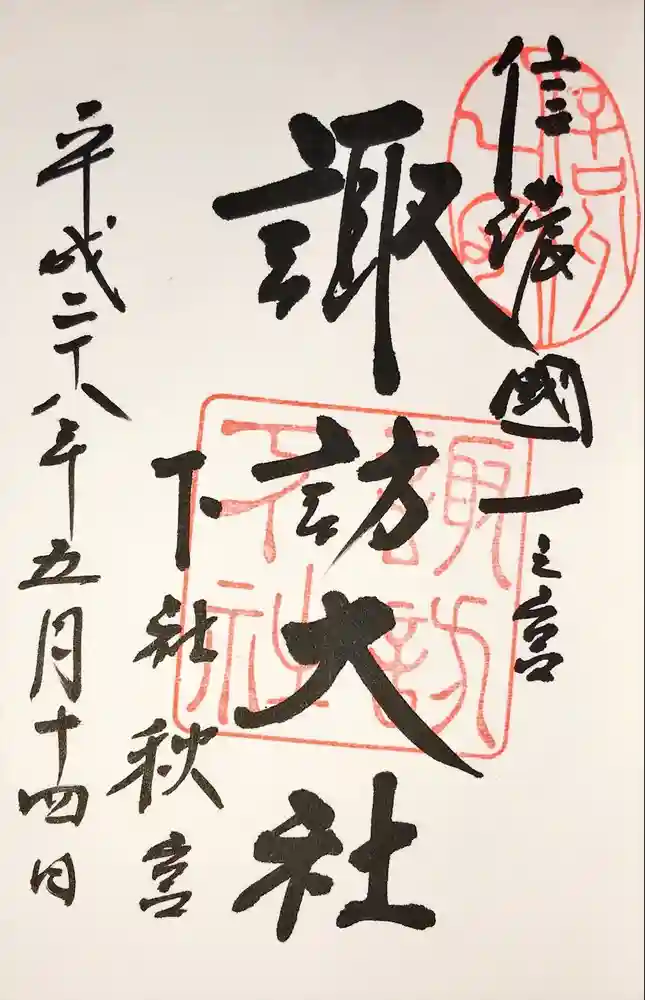 信濃國一之宮
諏訪大社
下社秋宮
平成二十八年五月十四日